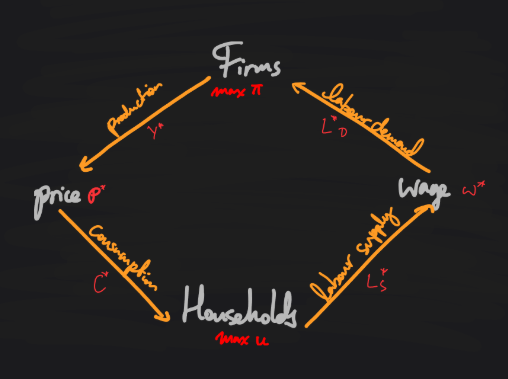 Firms
max π
production
Y*
labour demand
L*D
price p*
wage w*
consumption
C*
labour supply
Ls*
Households
max u